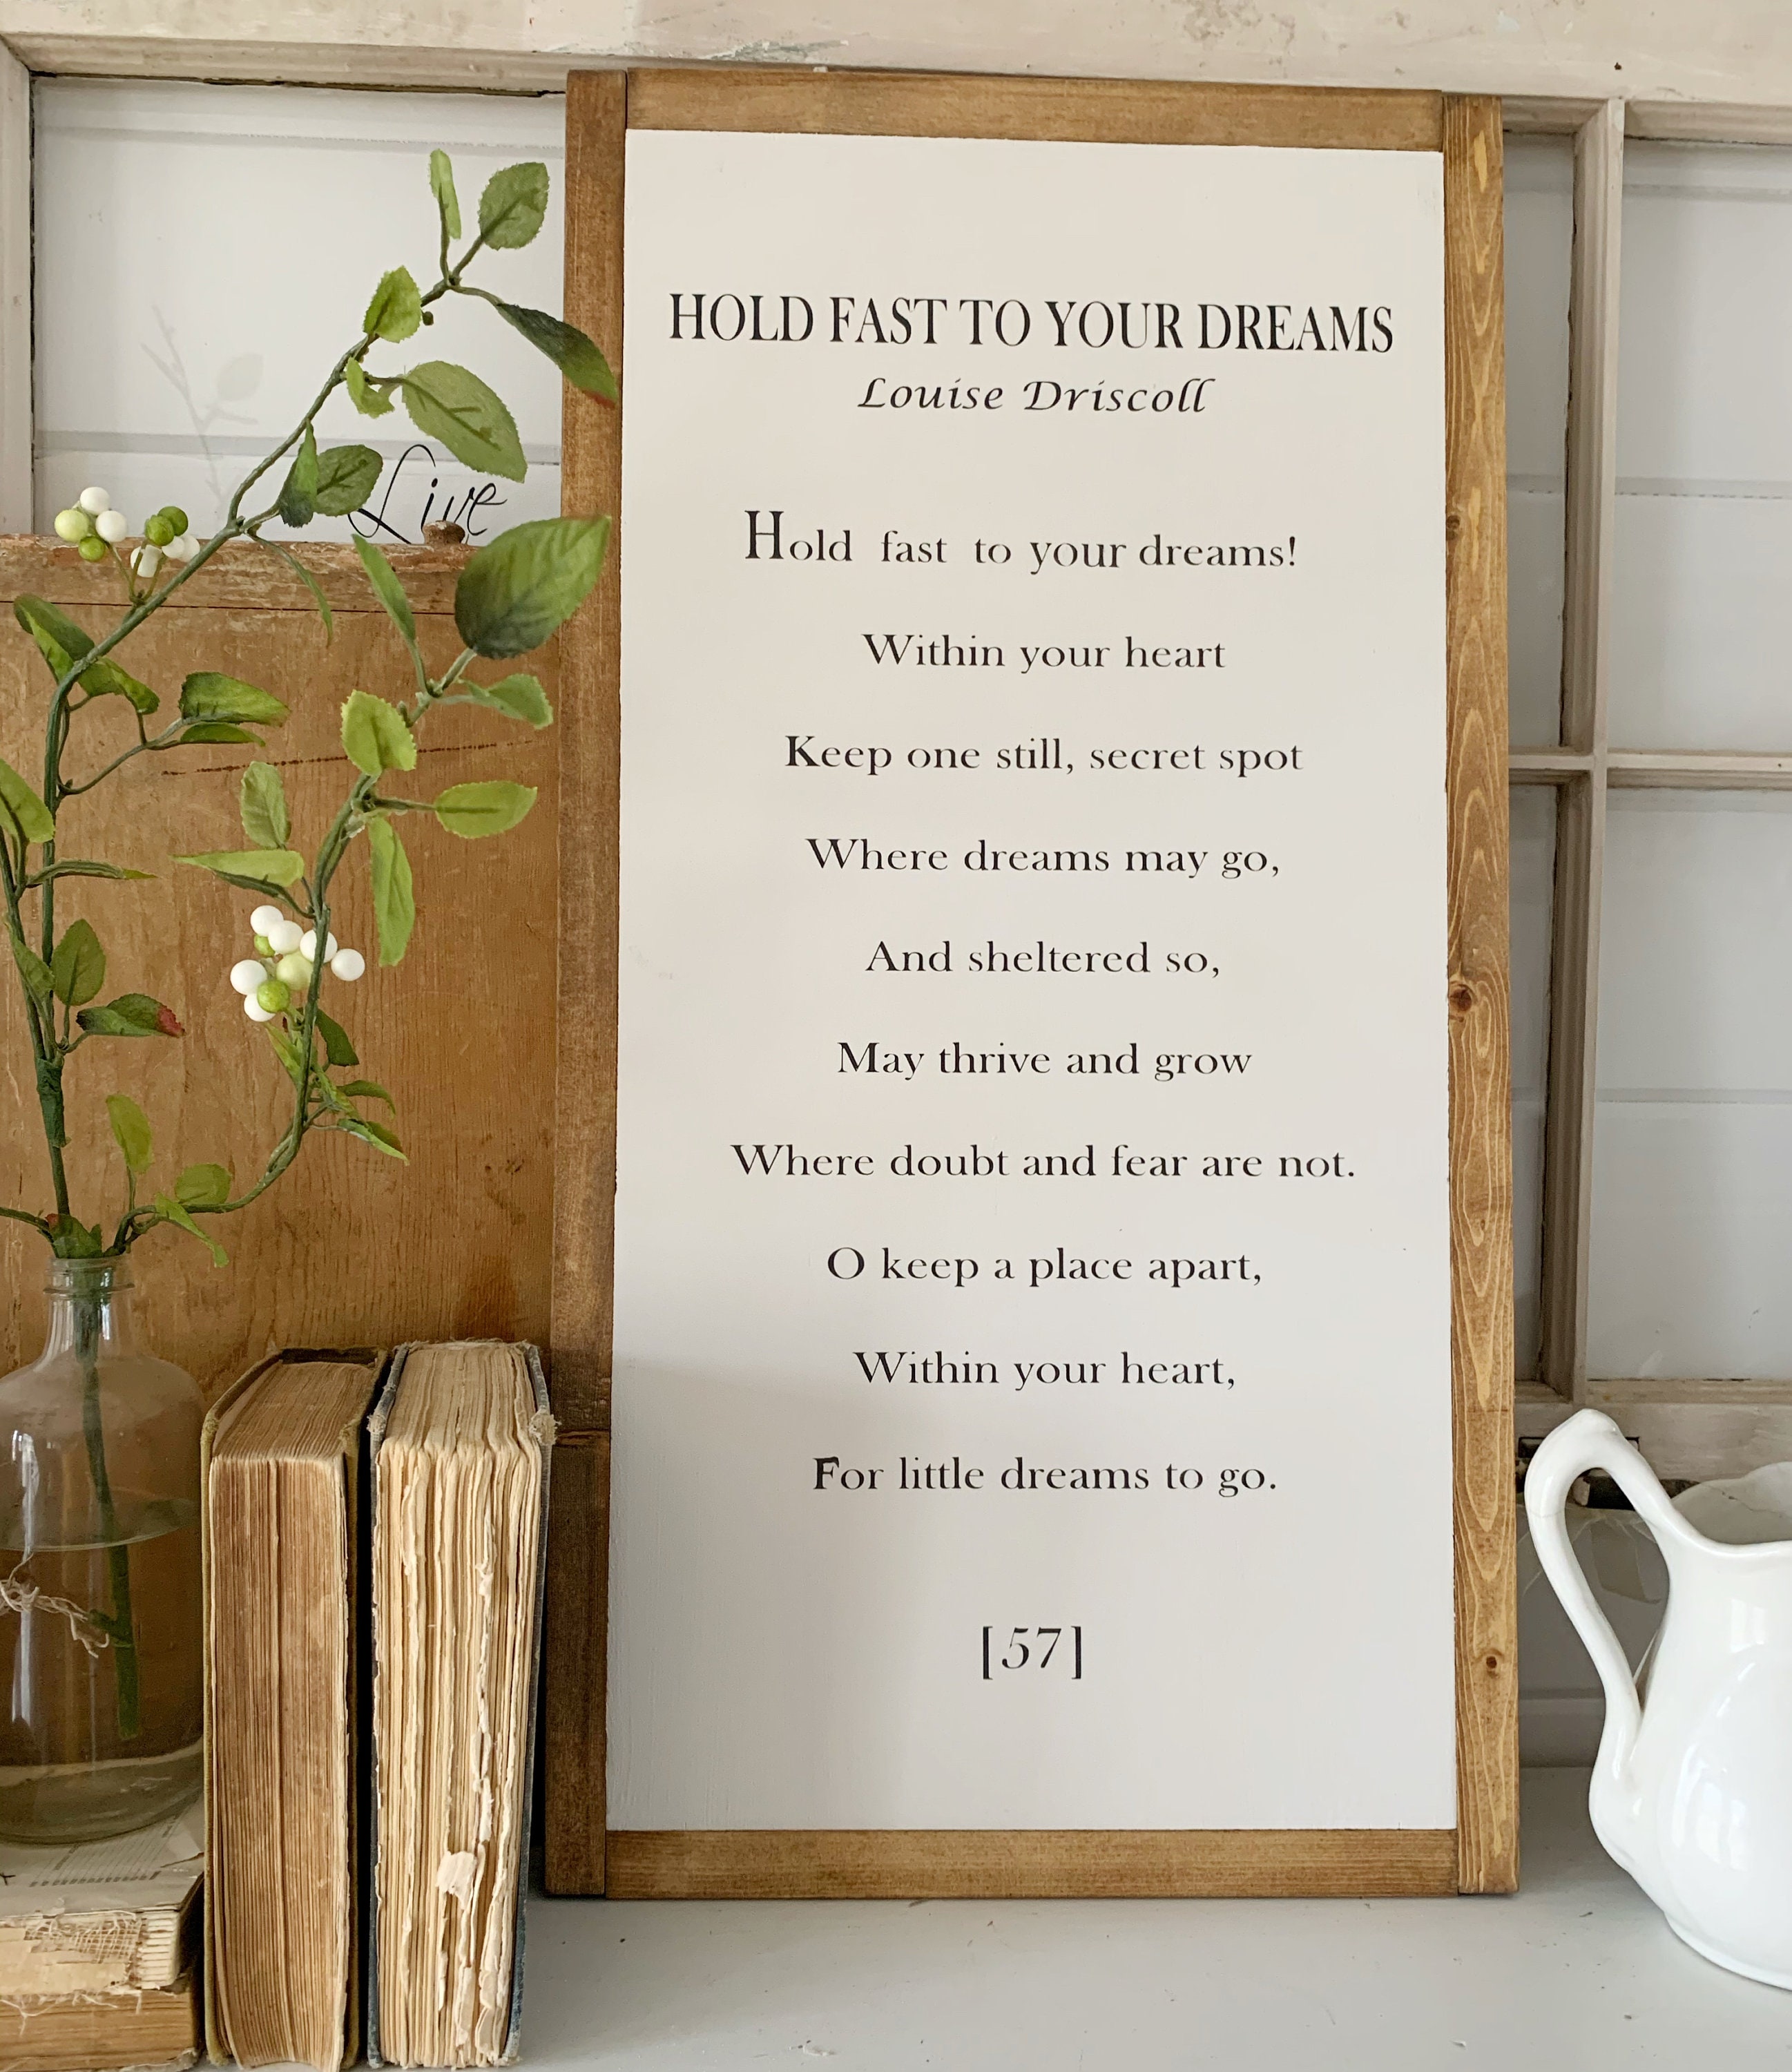 HOLD FAST TO YOUR DREAMS
Louise Driscoll
Live
Hold fast to your dreams!
Within your heart
Keep one still, secret spot
Where dreams may go,
And sheltered so,
May thrive and grow
Where doubt and fear are not.
O keep a place apart,
Within your heart,
For little dreams to go.
[57]